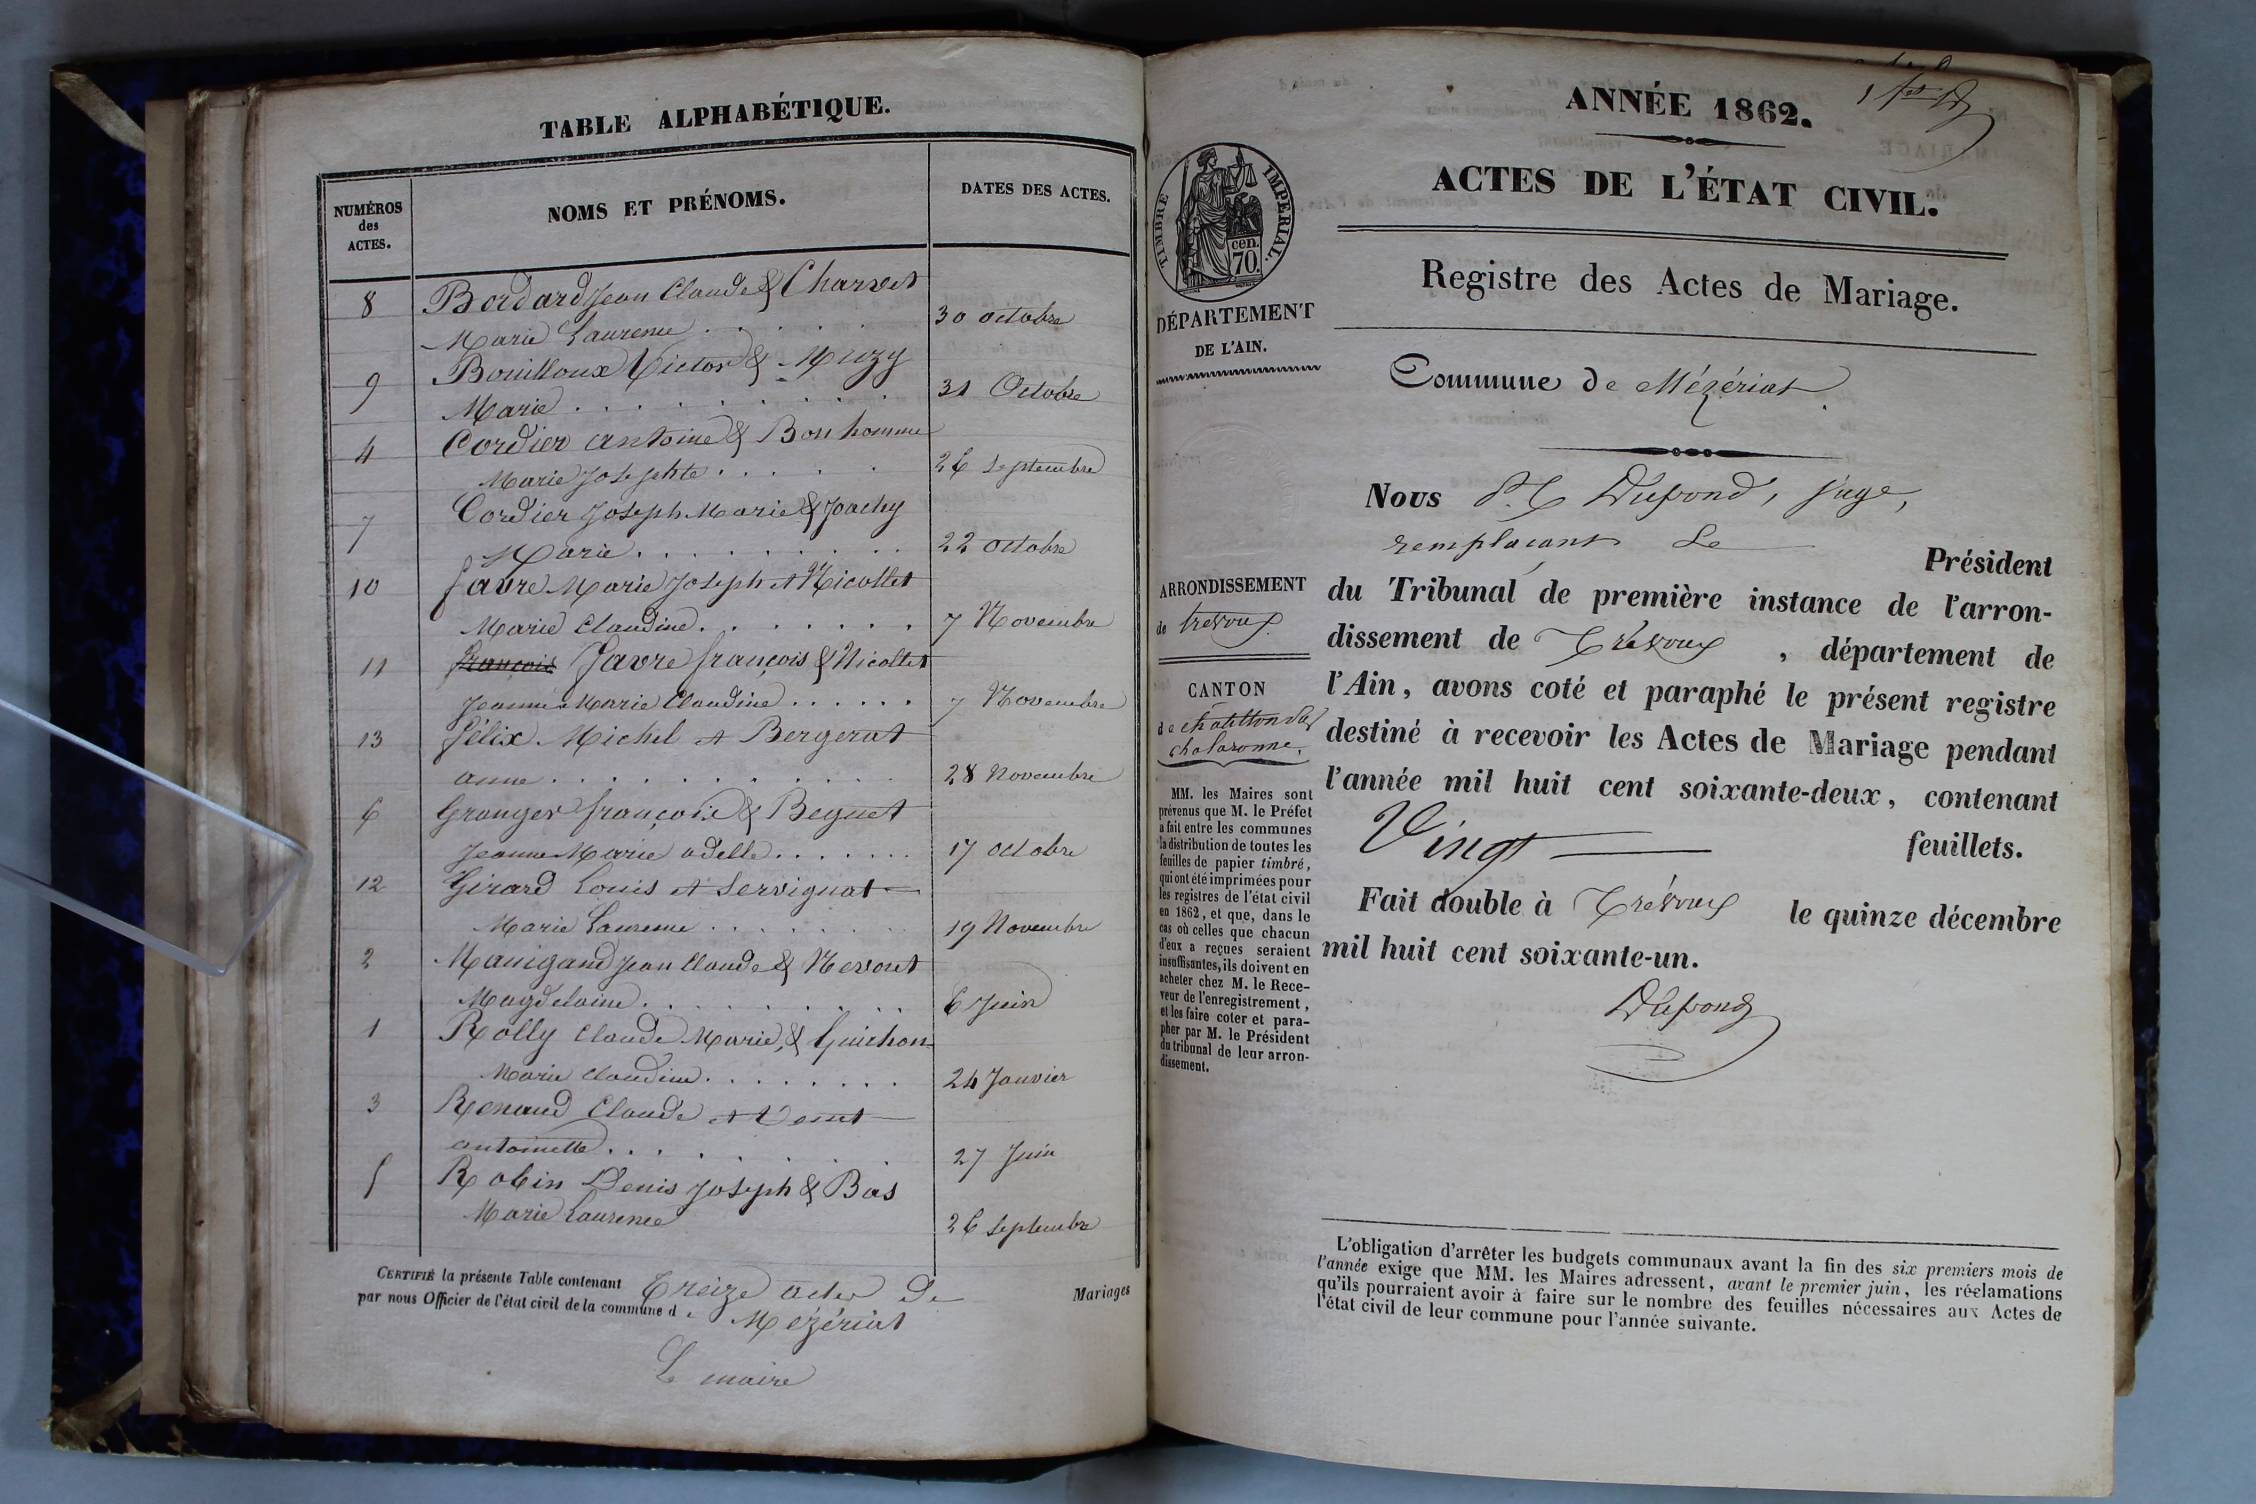 TABLE ALPHABÉTIQUE.
NUMÉROS
des
ACTES.
NOMS ET PRÉNOMS.
DATES DES ACTES.
8 Bordard Jean Claude & Charvet
Marie Laurence . . . . . 30 octobre
9 Bouilloux Victor & Muzy
Marie . . . . . . . . 31 Octobre
4 Cordier antoine & Bonhomme
Marie Josephte . . . . 26 Septembre
7 Cordier Joseph Marie & Joachy
Marie . . . . . . . . 22 octobre
10 favre Marie Joseph et Nicollet
Marie Claudine . . . . . . . 7 Novembre
11 françois Favre françois & Nicollet
Jeanne Marie Claudine . . . . . . 7 Novembre
13 félix Michel et Bergerat
anne . . . . . . . . . 28 Novembre
6 Granger françois & Beguet
Jeanne Marie adelle . . . . . . 17 octobre
12 Girard Louis et Servignat
Marie Laurence . . . . . . 19 Novembre
2 Manigand Jean Claude & Nevoret
Magdelaine . . . . . . . . 6 Juin
1 Rolly Claude Marie, & Guichon
Marie Claudine . . . . . . . . 24 Janvier
3 Renaud Claude et
antoinette . . . . . . . 27 Juin
5 Robin Denis Joseph & Bas
Marie Laurence 26 Septembre
CERTIFIÉ la présente Table contenant Treize actes de Mariages
par nous Officier de l'état civil de la commune de Mézériat
Le maire
ANNÉE 1862.
ACTES DE L'ÉTAT CIVIL.
TIMBRE IMPÉRIAL.
cen.
70.
Registre des Actes de Mariage.
DÉPARTEMENT
DE L'AIN.
Commune de Mézériat.
Nous Dupond, juge,
remplaçant le Président
du Tribunal de première instance de l'arron-
dissement de Trévoux, département de
l'Ain, avons coté et paraphé le présent registre
destiné à recevoir les Actes de Mariage pendant
l'année mil huit cent soixante-deux, contenant
Vingt feuillets.
Fait double à Trévoux le quinze décembre
mil huit cent soixante-un.
Dupond
ARRONDISSEMENT
de trevoux.
CANTON
de chatillon sur
chalaronne.
MM. les Maires sont
prévenus que M. le Préfet
a fait entre les communes
la distribution de toutes les
feuilles de papier timbré,
qui ont été imprimées pour
les registres de l'état civil
en 1862, et que, dans le
cas où celles que chacun
d'eux a reçues seraient
insuffisantes, ils doivent en
acheter chez M. le Rece-
veur de l'enregistrement,
et les faire coter et para-
pher par M. le Président
du tribunal de leur arron-
dissement.
L'obligation d'arrêter les budgets communaux avant la fin des six premiers mois de
l'année exige que MM. les Maires adressent, avant le premier juin, les réclamations
qu'ils pourraient avoir à faire sur le nombre des feuilles nécessaires aux Actes de
l'état civil de leur commune pour l'année suivante.